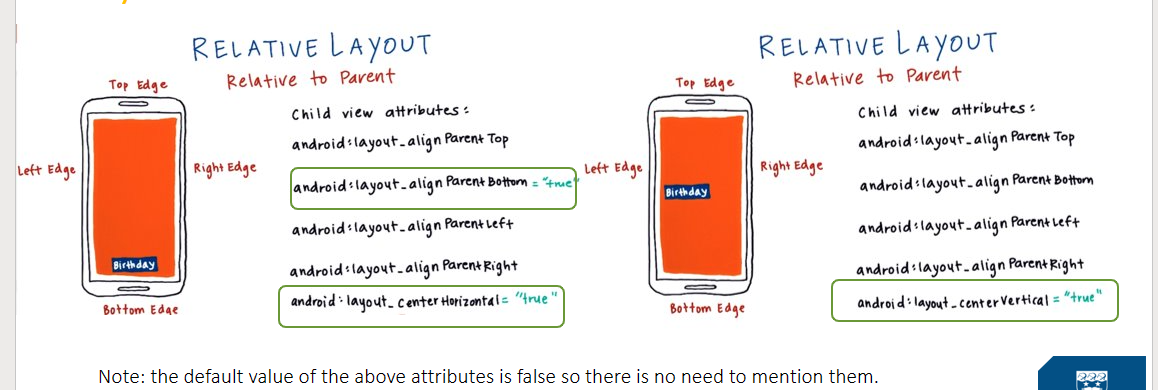 RELATIVE LAYOUT
Relative to Parent
Top Edge
Left Edge
Right Edge
Birthday
Bottom Edge
Child view attributes:
android:layout_align Parent Top
android:layout_align Parent Bottom = "true"
android:layout_align Parent Left
android:layout_align Parent Right
android:layout_center Horizontal = "true"
RELATIVE LAYOUT
Relative to Parent
Top Edge
Left Edge
Right Edge
Birthday
Bottom Edge
Child view attributes:
android:layout_align Parent Top
android:layout_align Parent Bottom
android:layout_align Parent Left
android:layout_align Parent Right
android:layout_center Vertical = "true"
Note: the default value of the above attributes is false so there is no need to mention them.